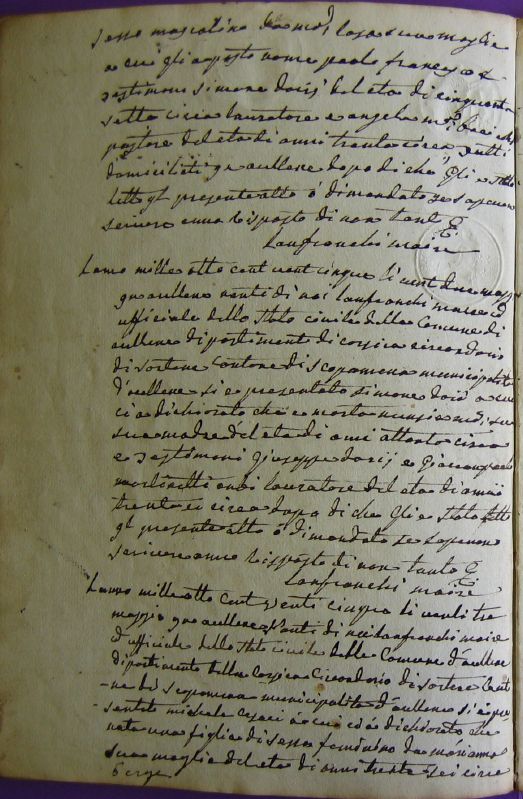 sesso mascolino da
a cui gli a posto nome paolo francesco e
testimoni simone dorij del eta di cinquanta
sette circa lauratore e angelo
pastore del eta di anni trenta circa tutti
domiciliti in aullene dopo di che gli e stato
letto il presente atto o dimandato se sapevono
scrivere anno risposto di non tanto
Lanfranchi maire
Lanno mille otto cent vent cinque li vent due maggio
in aullene vanti di noi lanfranchi maire ed
uffiiciale dello stato civile della Comune di
aullene dipartimenti di corsica circondario
di sartene cantone di scopamena municipalita
d'aullene si e presentato simone dorij a
ci a dichiorato che e morta
sua madre del eta di anni ottanta circa
e testimoni Giuseppe dorij e
martinetti anbi lauratore del eta di anni
trenta sei circa dopo di che gli e stato letto
il presente atto o dimandato se sapevono
scrivere anno risposto di non tanto
Lanfranchi maire
Lanno mille otto cent venti cinque li venti tre
maggio in aullene vanti di noi lanfranchi maire
ed uffiiciale dello stato civile della Comune d'aullene
dipartimento della corsica Circondorio di sartene Cant
-ne di scopamena municipalita d'aullene si a pre
-sentato michele cesari a cui ci a dichiorato che
nata una figlia di sesso feminino da marianna
sua moglie del eta di anni trenta sei circa